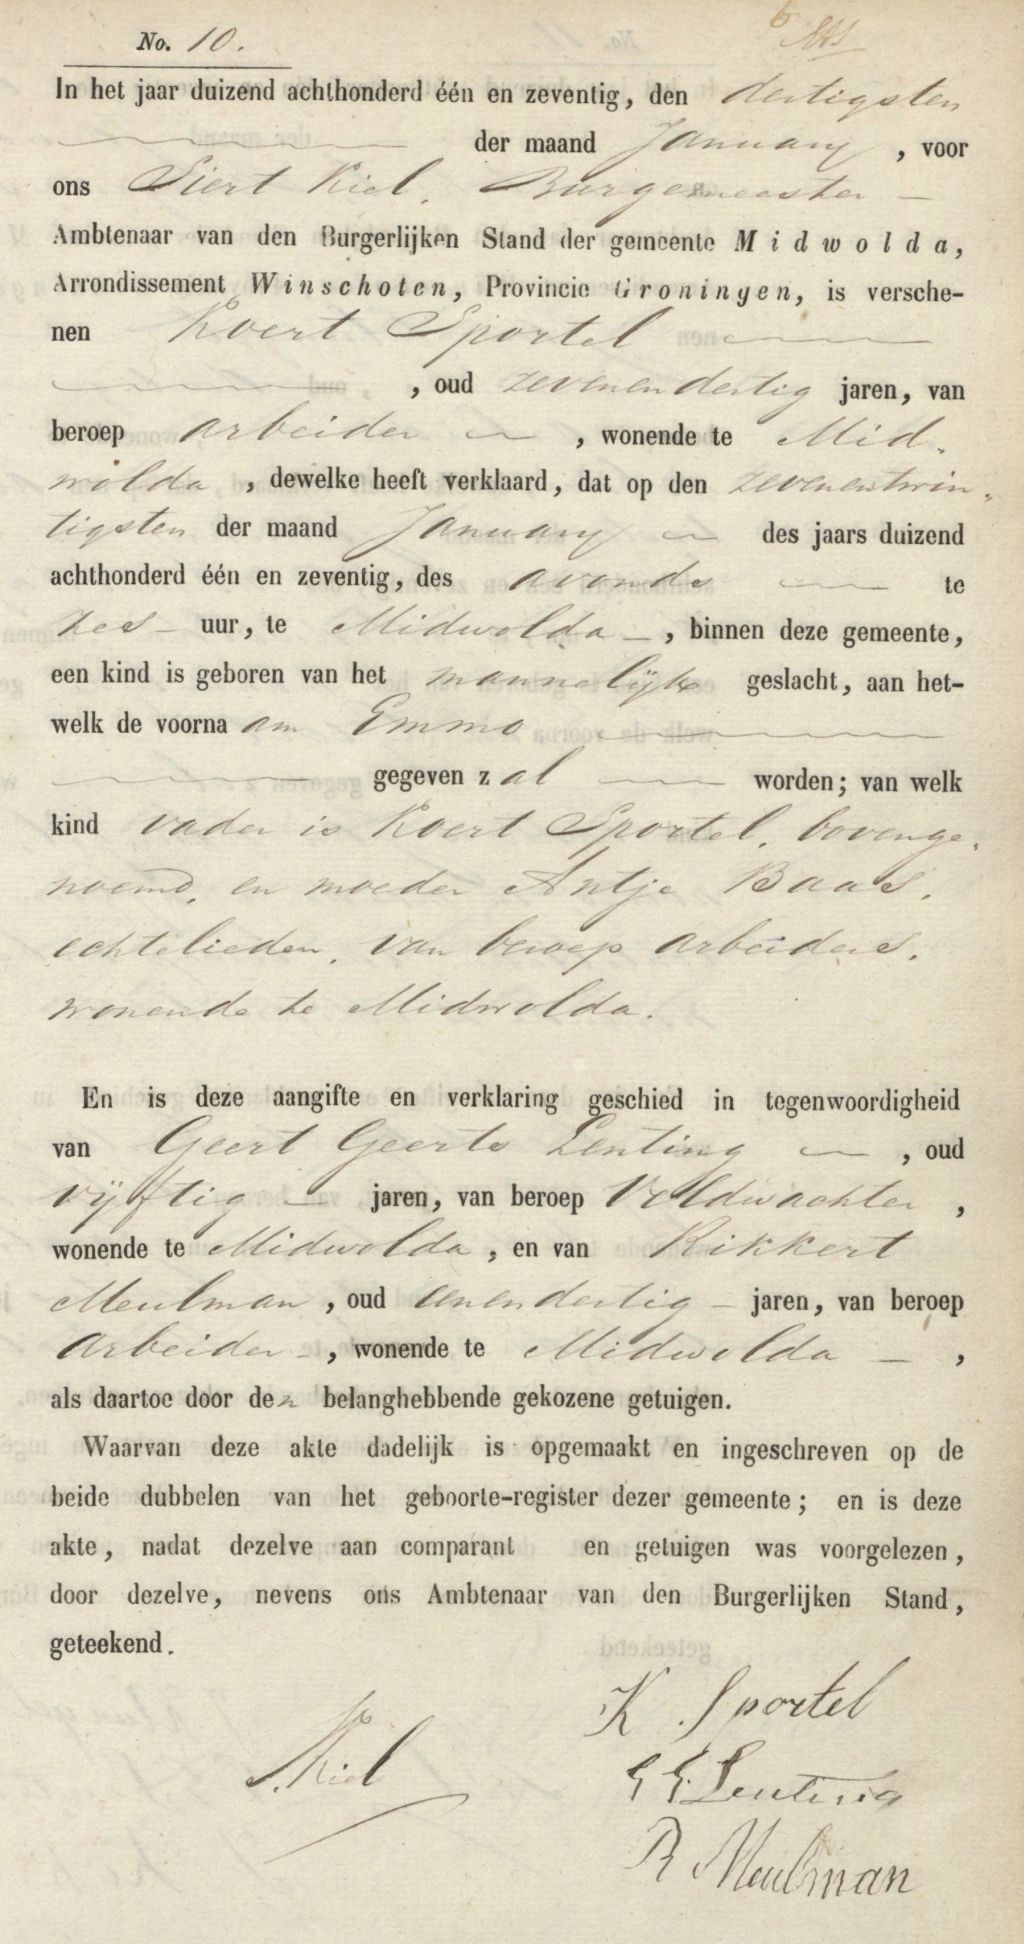 No. 10.
In het jaar duizend achthonderd één en zeventig, den dertigsten
der maand January, voor
ons Siert Kiel, Burgemeester
Ambtenaar van den Burgerlijken Stand der gemeente Midwolda,
Arrondissement Winschoten, Provincie Groningen, is versche-
nen Koert Sportel
, oud zevenendertig jaren, van
beroep arbeider, wonende te Mid-
wolda, dewelke heeft verklaard, dat op den zevenentwin-
tigsten der maand January des jaars duizend
achthonderd één en zeventig, des avonds te
zes uur, te Midwolda, binnen deze gemeente,
een kind is geboren van het mannelijk geslacht, aan het-
welk de voornaam Emmo
gegeven zal worden; van welk
kind vader is Koert Sportel, bovenge-
noemd, en moeder Antje Baas,
echtelieden, van beroep arbeiders,
wonende te Midwolda.
En is deze aangifte en verklaring geschied in tegenwoordigheid
van Geert Geerts Lenting, oud
vijftig jaren, van beroep Veldwachter,
wonende te Midwolda, en van Rikkert
Meulman, oud eenendertig jaren, van beroep
Arbeider, wonende te Midwolda,
als daartoe door den belanghebbende gekozene getuigen.
Waarvan deze akte dadelijk is opgemaakt en ingeschreven op de
beide dubbelen van het geboorte-register dezer gemeente; en is deze
akte, nadat dezelve aan comparant en getuigen was voorgelezen,
door dezelve, nevens ons Ambtenaar van den Burgerlijken Stand,
geteekend.
K Sportel
S. Kiel
G G Lenting
R Meulman